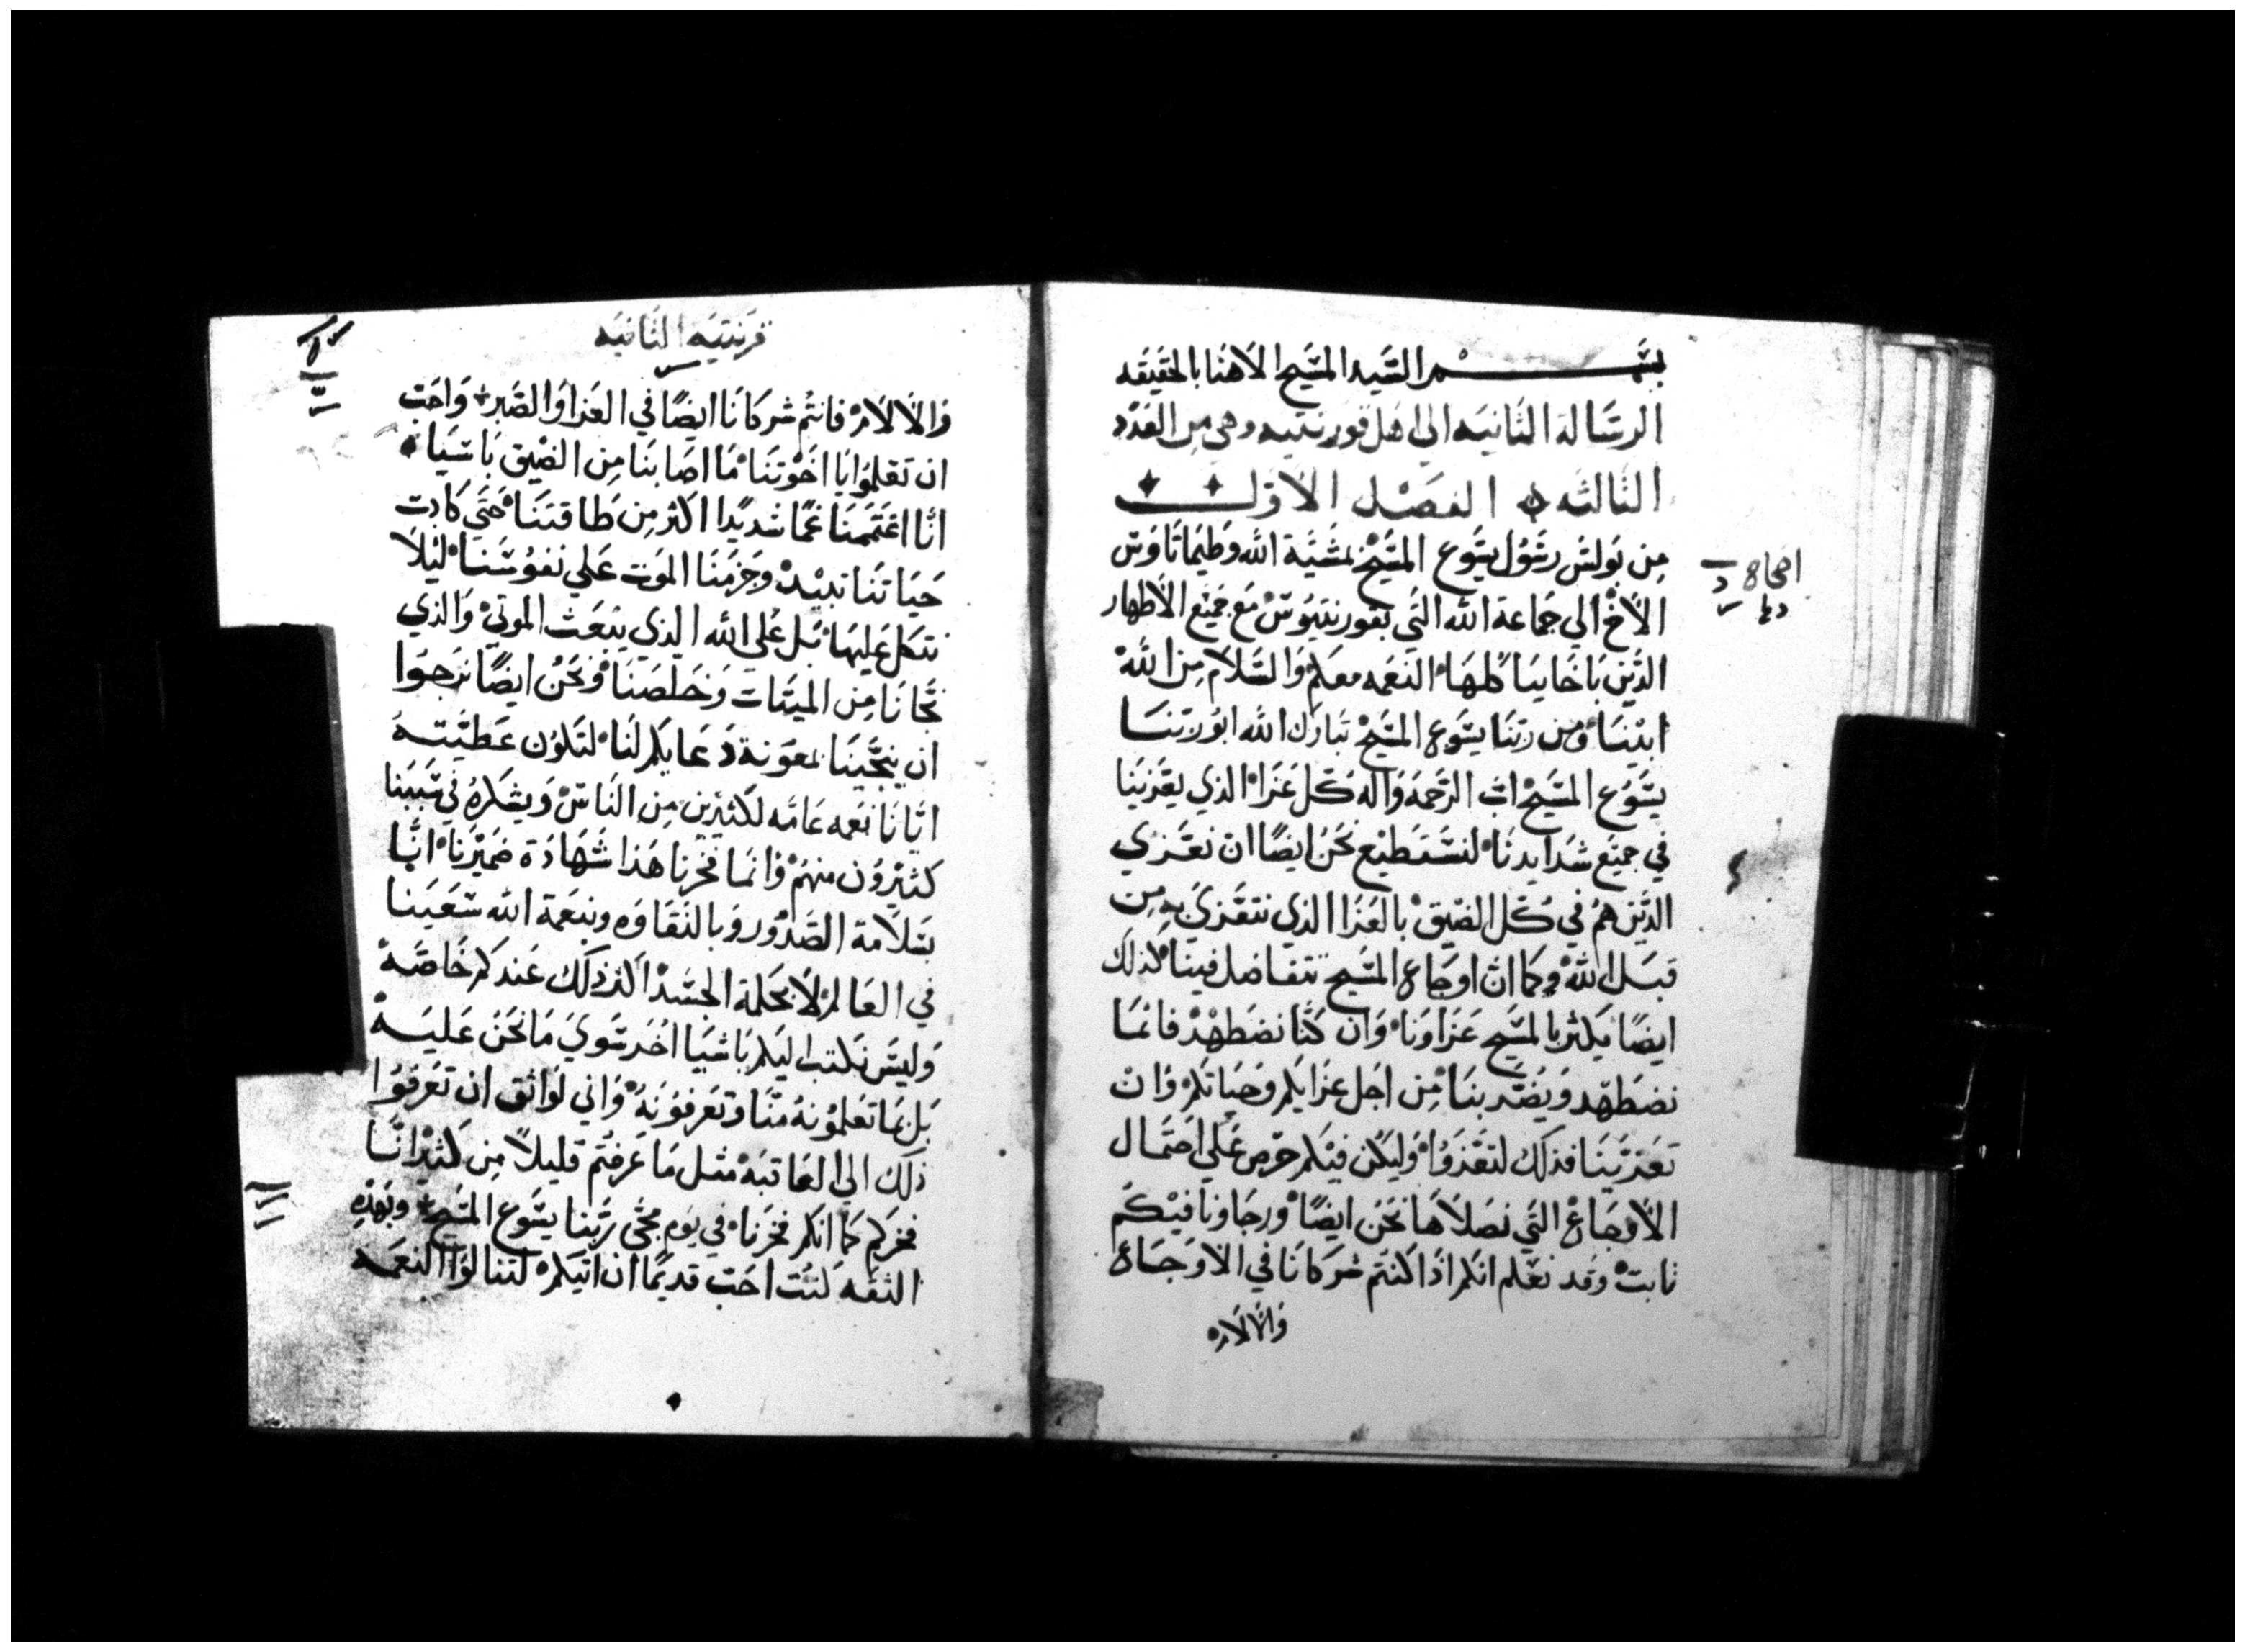 بسم السيد المسيح الاهنا بالحقيقه
الرسالة الثانيه الي اهل قورنتيه وهي من العدد
الثالثه الفصل الاول
من بولس رسول يسوع المسيح بمشية الله وطيماتاوس
الاخ الي جماعة الله التي بقورنتيوس مع جميع الاطهار
الذين باخاييا كلها النعمه معكم والسلام من الله
ابينا ومن ربنا يسوع المسيح تبارك الله ابو ربنا
يسوع المسيح اب الرحمه واله كل عزا الذي يعزينا
في جميع شدايدنا لنستطيع نحن ايضًا ان نعزي
الذين هم في كل الضيق بالعزا الذي نتعزي به من
قبل الله وكما ان اوجاع المسيح تتفاضل فينا كذلك
ايضًا يكثر بالمسيح عزاونا وان كنا نضطهد فانما
نضطهد ويضر بنا من اجل عزايكم وحياتكم وان
تعزينا فذلك لتعزوا وليكن فيكم حرص علي احتمال
الاوجاع التي نصلاها نحن ايضًا ورجاونا فيكم
ثابت وقد نعلم انكم اذا كنتم شركانا في الاوجاع
والالام
اصحاح
قرنتيه الثانيه
والالام فانتم شركانا ايضًا في العزا والصبر واحب
ان تعلموا يا اخوتنا ما اصابنا من الضيق باسيا
انا اغتممنا غمًا شديدًا اكثر من طاقتنا حتي كادت
حياتنا تبيد وجزمنا الموت علي نفوسنا ليلا
نتكل عليها بل علي الله الذي يبعث الموتي والذي
نجانا من الميتات وخلصنا ونحن ايضًا نرجوا
ان ينجينا بمعونة دعايكم لنا لتكون عطيته
ايانا نعمه عامه لكثيرين من الناس ويشكره في سببنا
كثيرون منهم وانما فخرنا هذا شهادة ضميرنا انا
بسلامة الصدور وبالنقاوه وبنعمة الله سعينا
في العالم لا بحكمة الجسد اكثر ذلك عندكم خاصه
وليس نكتب اليكم باشيا اخر سوي ما نحن عليه
بل بما تعلمونه منا وتعرفونه واني لواثق ان تعرفوا
ذلك الي العاقبه مثل ما عرفتم قليلاً من كثير انا
فخركم كما انكم فخرنا في يوم مجي ربنا يسوع المسيح وبهذه
الثقه كنت احب قديمًا ان اتيكم لتنالوا النعمه